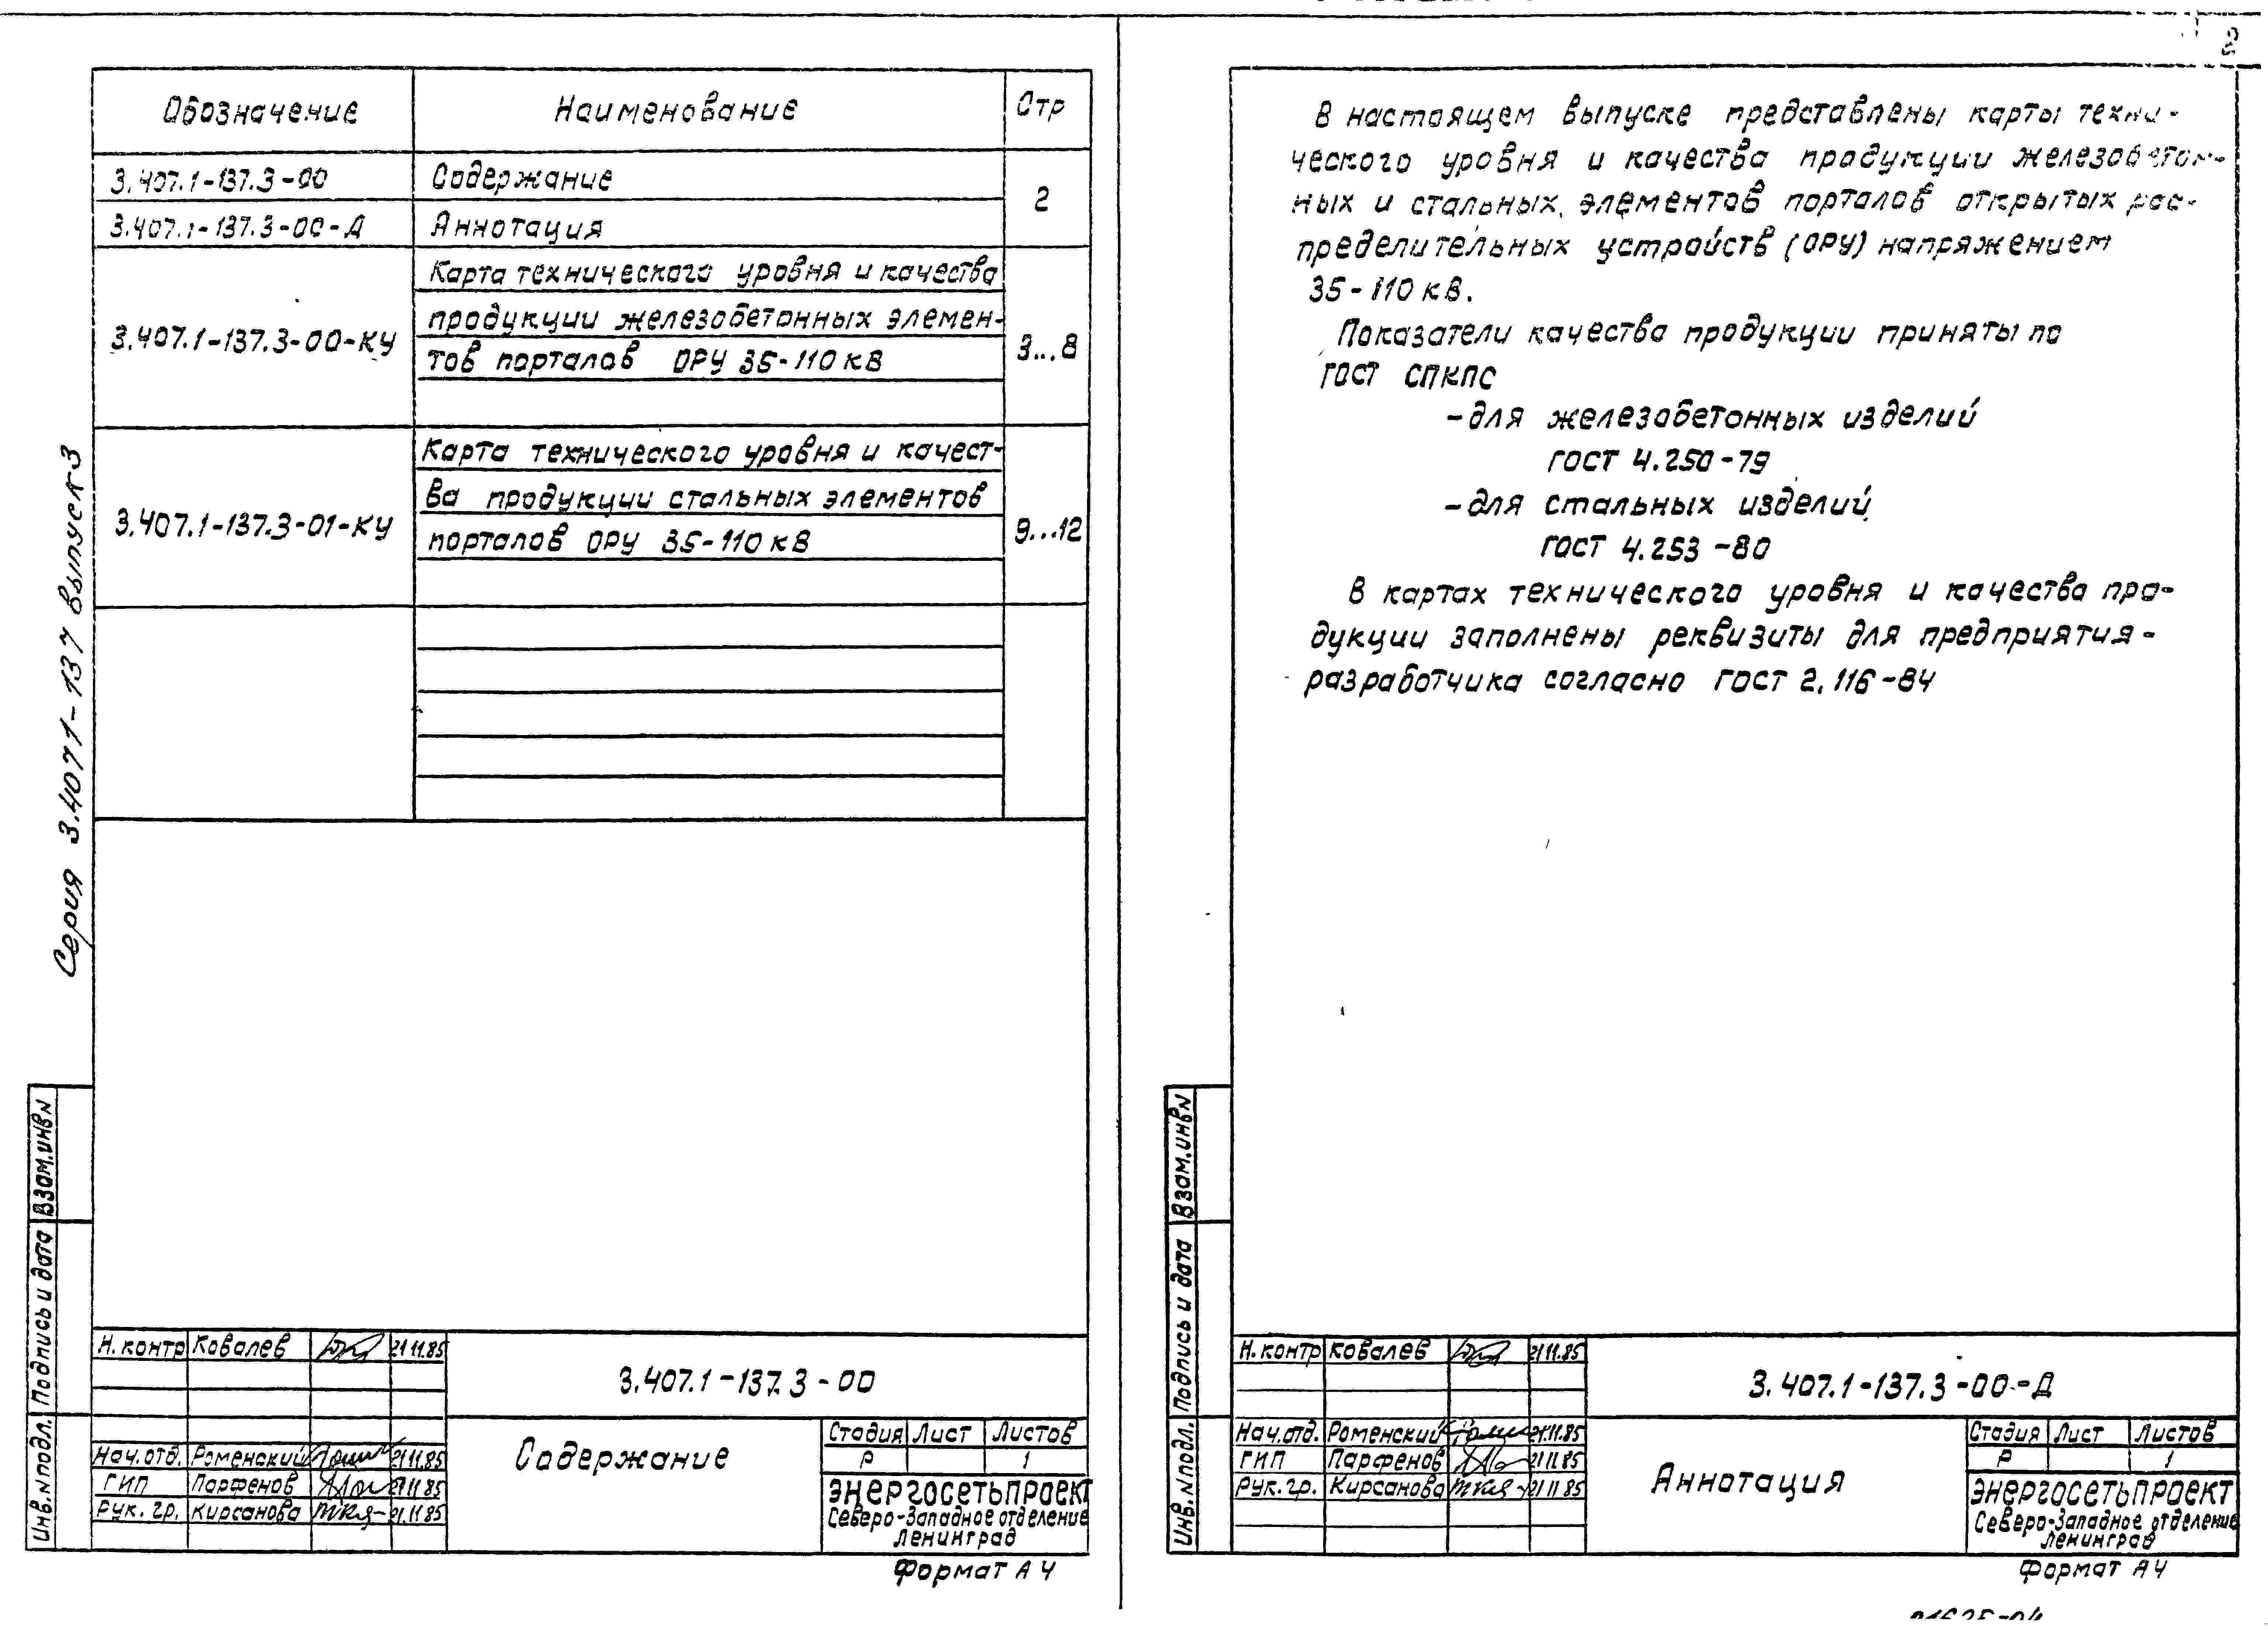 2
Обозначение Наименование Стр
3.407.1-137.3-00 Содержание 2
3.407.1-137.3-00-Д Аннотация
3.407.1-137.3-00-КУ Карта технического уровня и качества
продукции железобетонных элемен-
тов порталов ОРУ 35-110 кВ 3...8
3.407.1-137.3-01-КУ Карта технического уровня и качест-
ва продукции стальных элементов
порталов ОРУ 35-110 кВ 9...12
Серия 3.407.1-137 выпуск 3
Взам.инв.N
Подпись и дата
Инв.N подл.
Н.контр Ковалев 21.11.85
Нач.отд. Роменский 21.11.85
ГИП Парфенов 21.11.85
Рук.гр. Кирсанова 21.11.85
3.407.1-137.3-00
Содержание
Стадия Лист Листов
Р 1
Энергосетьпроект
Северо-Западное отделение
Ленинград
Формат А4
В настоящем выпуске представлены карты техни-
ческого уровня и качества продукции железобетон-
ных и стальных элементов порталов открытых рас-
пределительных устройств (ОРУ) напряжением
35-110 кВ.
Показатели качества продукции приняты по
ГОСТ СПКПС
-для железобетонных изделий
ГОСТ 4.250-79
-для стальных изделий
ГОСТ 4.253-80
В картах технического уровня и качества про-
дукции заполнены реквизиты для предприятия-
разработчика согласно ГОСТ 2.116-84
Взам.инв.N
Подпись и дата
Инв.N подл.
Н.контр Ковалев 21.11.85
Нач.отд. Роменский 21.11.85
ГИП Парфенов 21.11.85
Рук.гр. Кирсанова 21.11.85
3.407.1-137.3-00-Д
Аннотация
Стадия Лист Листов
Р 1
Энергосетьпроект
Северо-Западное отделение
Ленинград
Формат А4